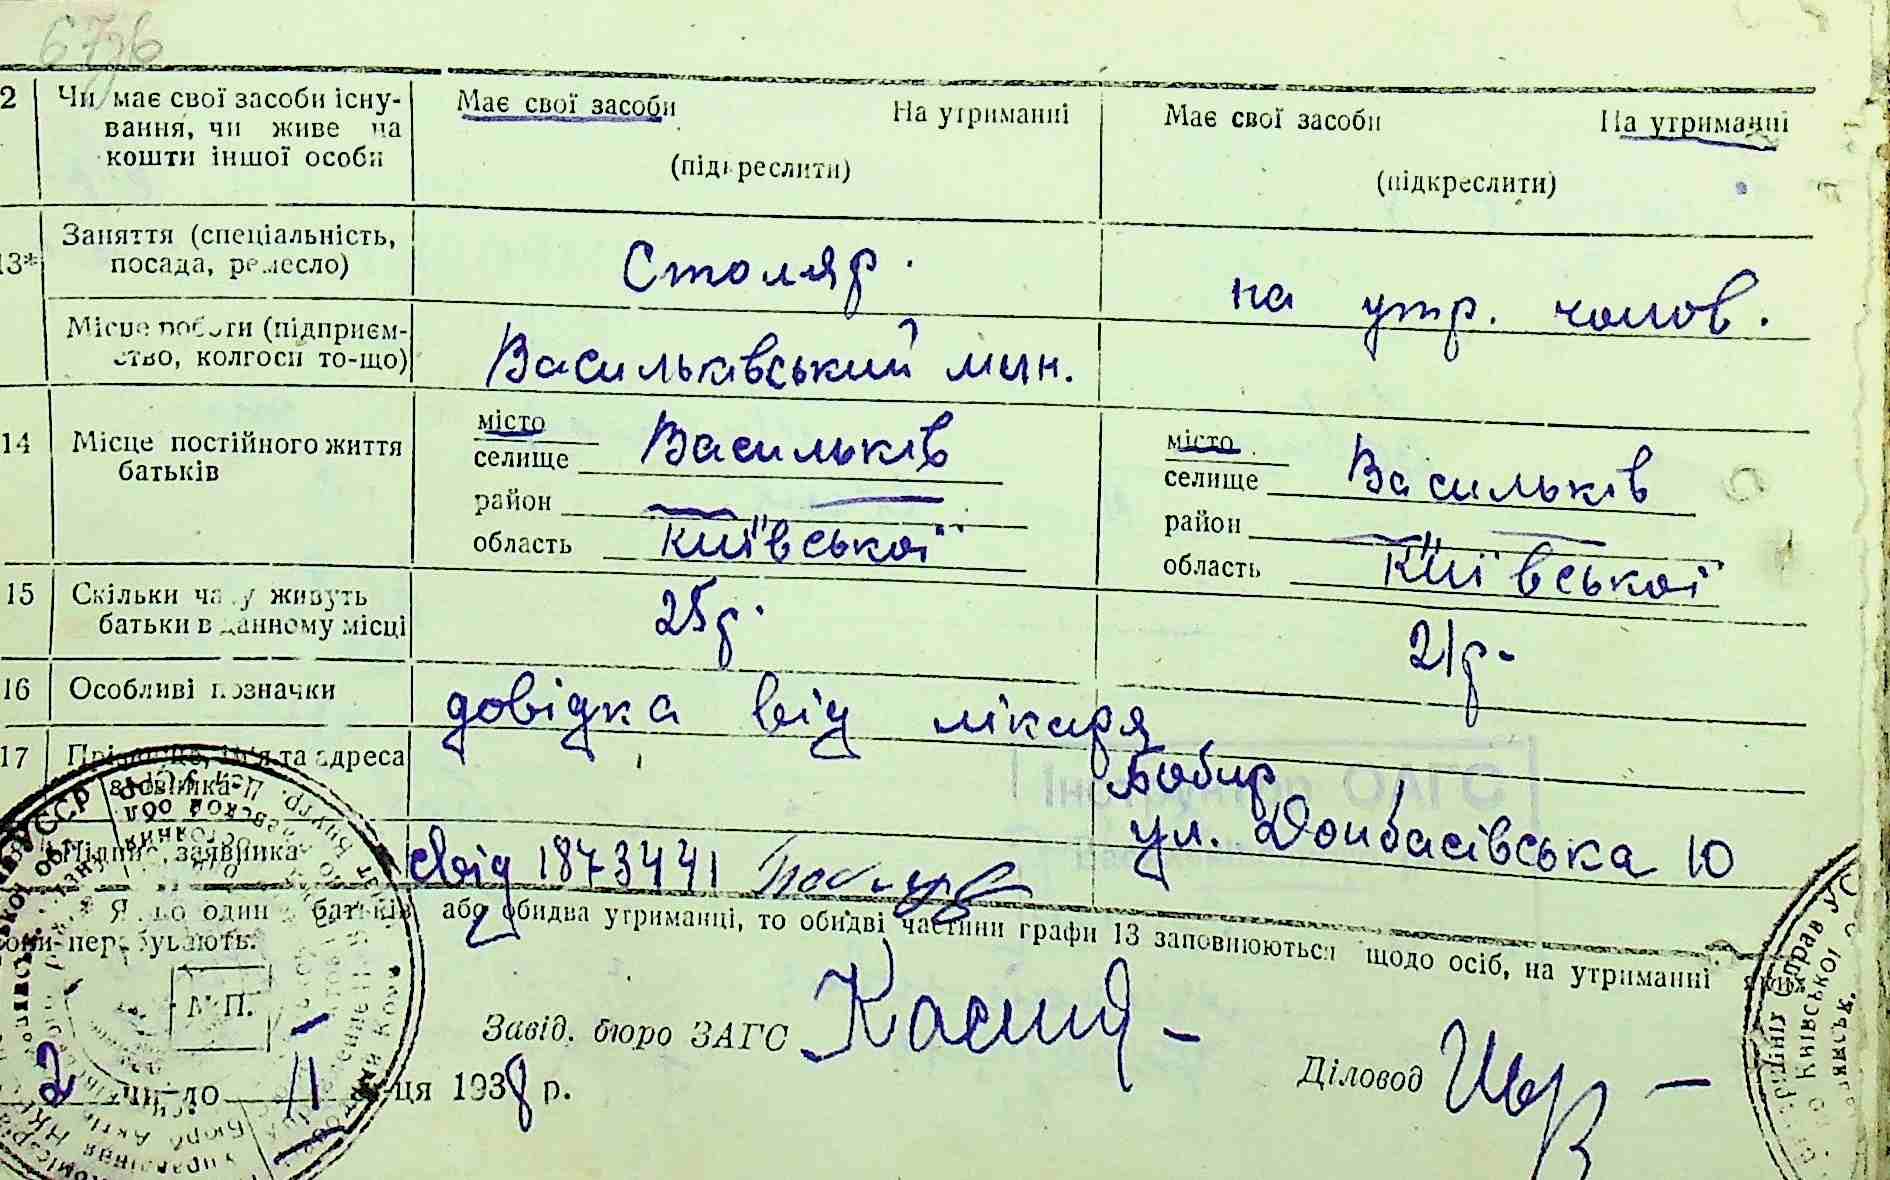 6776
2 Чи має свої засоби існу- Має свої засоби На утриманні Має свої засоби На утриманні
вання, чи живе на
кошти іншої особи (підкреслити) (підкреслити)
13* Заняття (спеціальність,
посада, ремесло) Столяр. на утр. чолов.
Місце роботи (підприєм-
ство, колгосп то-що) Васильківський млин.
14 Місце постійного життя
батьків
місто
селище Васильків
район —
область Київської
місто
селище Васильків
район —
область Київської
15 Скільки часу живуть
батьки в данному місці 25 р. 21 р.
16 Особливі позначки довідка від лікаря
17 Прізвище, ім'я та адреса
заявника Бобир
ул. Донбасівська 10
Підпис заявника свід 1873441
Якщо один з батьків, або обидва утриманці, то обидві частини графи 13 заповнюються щодо осіб, на утриманні яких
вони перебувають.
М. П.
Завід. бюро ЗАГС
Діловод
2 чи-ло 11 м-ця 1938 р.
Інструктор ОАГС